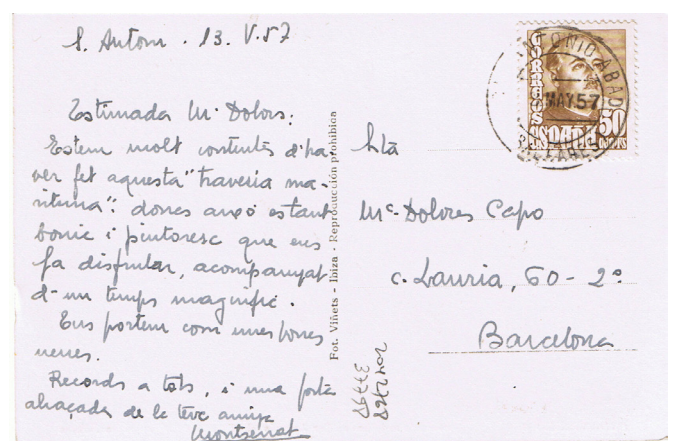 S. Antoni · 13. V. 57
Estimada Mª Dolors:
Estem molt contentes d'ha-
ver fet aquesta "travesia ma-
ritima": doncs axó es tant
bonic i pintoresc que ens
fa disfrutar, acompanyat
d'un temps magnific.
Ens portem com unes bones
nenes.
Records a tots, i una forta
abraçada de la teva amiga
Montserrat
Fot. Viñets - Ibiza - Reproducción prohibida
Mª Dolores Capo
c. Lauria, 60 - 2º
Barcelona
CORREOS
ESPAÑA
50
CTS
ANTONIO ABAD
MAY.57
BALEARES